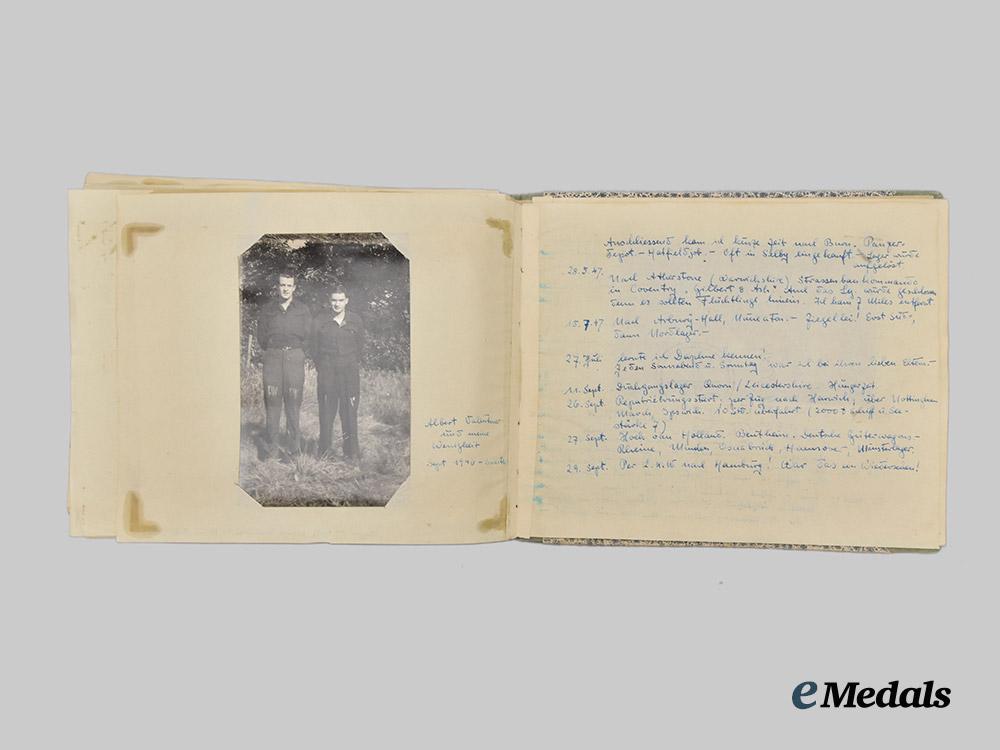 Albert
und meine
Wenigkeit
Sept 1946
Anschliessend kam ich kurze Zeit nach Burn. Panzer-
depot - Hatfield - Oft in Selby eingekauft - Lager wurde
aufgelöst
28.3.47. Nach Atherstone (Warwickshire) Strassenbaukommando
in Coventry, Gilbert & Ash! Auch das Lg. wurde geschlossen
denn es sollten Flüchtlinge hinein. Ich kam 7 Miles entfernt
15.7.47 Nach Arbury-Hall, Nuneaton. - Ziegelei! Erst Süd-,
dann Nordlager. -
27. Juli lernte ich Daphne kennen!
Jeden Sonnabend u. Sonntag war ich bei ihren lieben Eltern.
11. Sept. Durchgangslager Quorn / Leicestershire. Hungerzeit
26. Sept. Repatriierungsstart, per Zug nach Harwich, über Nottingham
March, Ipswich. 10 Std. Überfahrt (2000
stärke 7)
27. Sept. Hoek van Holland. Bentheim. Deutsche Güterwagons -
Rheine, Minden, Osnabrück, Hannover, Münsterlager.
29. Sept. Per L.K.W nach Hamburg! War das ein Wiedersehen!
eMedals